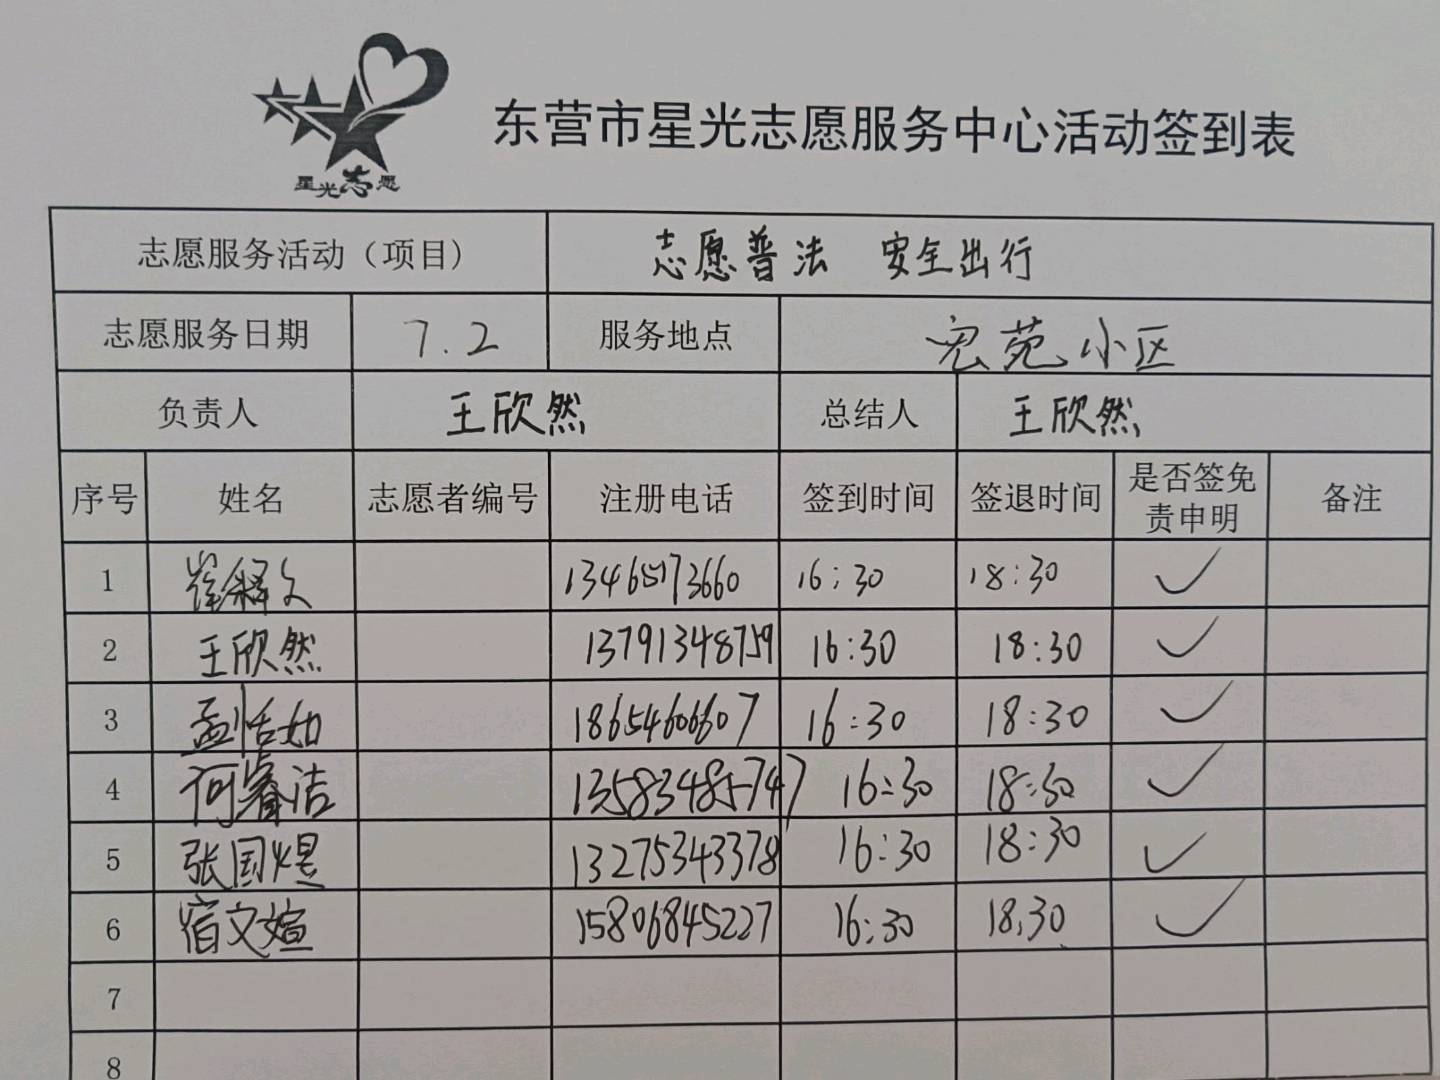 星光志愿
东营市星光志愿服务中心活动签到表
志愿服务活动（项目） 志愿普法 安全出行
志愿服务日期 7.2 服务地点 宏苑小区
负责人 王欣然 总结人 王欣然
序号 姓名 志愿者编号 注册电话 签到时间 签退时间 是否签免责申明 备注
1 崔释文 13465173660 16:30 18:30 ✓
2 王欣然 13791348759 16:30 18:30 ✓
3 孟恬如 18654606607 16:30 18:30 ✓
4 何睿洁 13583485747 16:30 18:30 ✓
5 张国煜 13275343378 16:30 18:30 ✓
6 宿文媗 15806845227 16:30 18.30 ✓
7
8